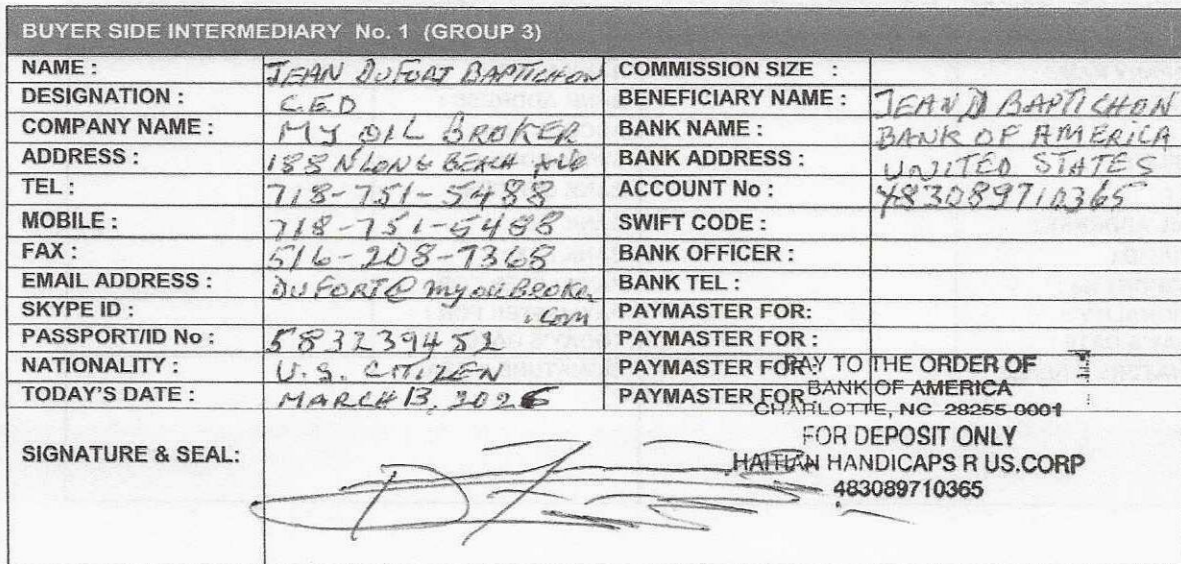 BUYER SIDE INTERMEDIARY No. 1 (GROUP 3)
NAME : JEAN DUFORT BAPTICHON COMMISSION SIZE :
DESIGNATION : C.E.O BENEFICIARY NAME : JEAN D BAPTICHON
COMPANY NAME : MY OIL BROKER BANK NAME : BANK OF AMERICA
ADDRESS : 188 N LONG BEACH AVE BANK ADDRESS : UNITED STATES
TEL : 718-751-5488 ACCOUNT No : 483089710365
MOBILE : 718-751-5488 SWIFT CODE :
FAX : 516-208-7368 BANK OFFICER :
EMAIL ADDRESS : DUFORT@myoilBROKER BANK TEL :
SKYPE ID : .com PAYMASTER FOR:
PASSPORT/ID No : 583239452 PAYMASTER FOR :
NATIONALITY : U.S. CITIZEN PAYMASTER FOR
TODAY'S DATE : MARCH 13, 2026 PAYMASTER FOR
PAY TO THE ORDER OF
BANK OF AMERICA
CHARLOTTE, NC 28255-0001
FOR DEPOSIT ONLY
SIGNATURE & SEAL:
HAITIAN HANDICAPS R US.CORP
483089710365